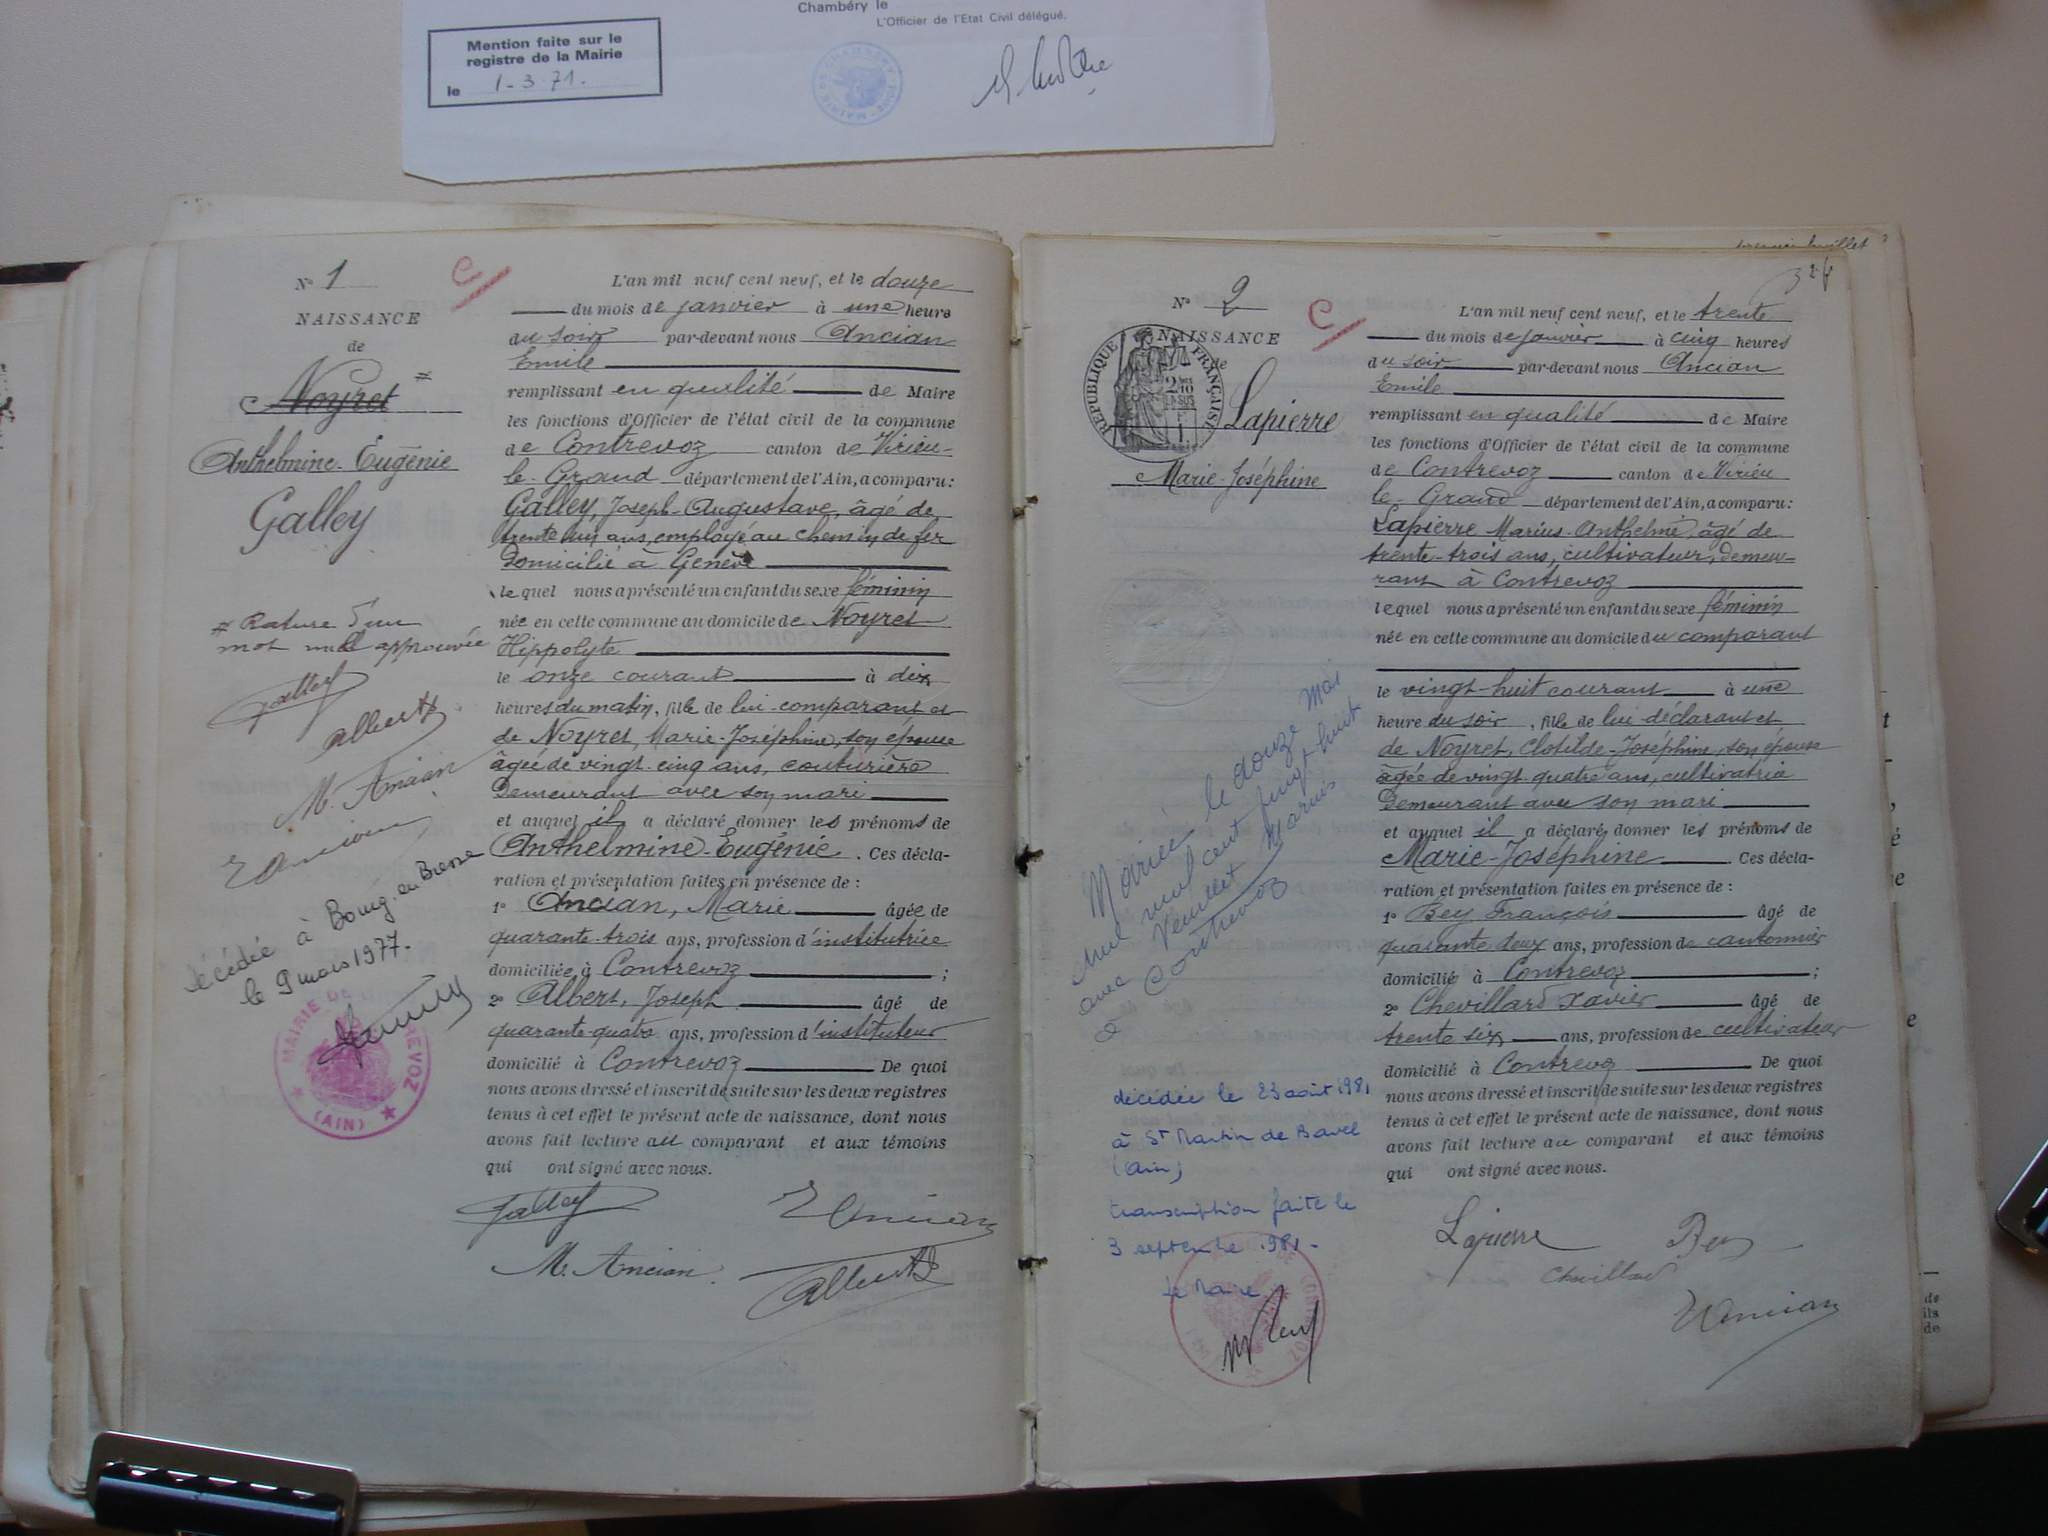 Chambéry le
L'Officier de l'Etat Civil délégué.
Mention faite sur le
registre de la Mairie
le 1-3-71.
N° 1
NAISSANCE
de
Noyret #
Anthelmine-Eugénie
Galley
# Rature d'un
mot nul approuvée
Galley
Albert
M. Ancian
E Ancian
décédée à Bourg-en-Bresse
le 9 mars 1977.
MAIRIE DE CONTREVOZ
(AIN)
C
L'an mil neuf cent neuf, et le douze
du mois de janvier à une heure
du soir par-devant nous Ancian
Emile
remplissant en qualité de Maire
les fonctions d'Officier de l'état civil de la commune
de Contrevoz canton de Virieu-
le-Grand département de l'Ain, a comparu:
Galley, Joseph-Augustave, âgé de
trente un ans, employé au chemin de fer
Domicilié à Genève
lequel nous a présenté un enfant du sexe féminin
née en cette commune au domicile de Noyret
Hippolyte
le onze courant à dix
heures du matin, fille de lui-comparant et
de Noyret, Marie-Joséphine, son épouse
âgée de vingt-cinq ans, couturière
Demeurant avec son mari
et auquel il a déclaré donner les prénoms de
Anthelmine-Eugénie. Ces décla-
ration et présentation faites en présence de :
1° Ancian, Marie âgée de
quarante-trois ans, profession d'institutrice
domiciliée à Contrevoz ;
2° Albert, Joseph âgé de
quarante-quatre ans, profession d'instituteur
domicilié à Contrevoz De quoi
nous avons dressé et inscrit de suite sur les deux registres
tenus à cet effet le présent acte de naissance, dont nous
avons fait lecture au comparant et aux témoins
qui ont signé avec nous.
Galley E Ancian
M. Ancian. Albert
N° 2
NAISSANCE
de
RÉPUBLIQUE FRANÇAISE
Lapierre
Marie-Joséphine
Mariée le douze mai
mil neuf cent vingt-huit
avec Veuillet Marius
à Contrevoz
décédée le 23 août 1981
à St Martin de Bavel
(Ain)
transcription faite le
3 septembre 1981.
Le Maire
C
L'an mil neuf cent neuf, et le trente
du mois de janvier à cinq heures
du soir par-devant nous Ancian
Emile
remplissant en qualité de Maire
les fonctions d'Officier de l'état civil de la commune
de Contrevoz canton de Virieu
le-Grand département de l'Ain, a comparu:
Lapierre Marius-Anthelme, âgé de
trente-trois ans, cultivateur, demeu-
rant à Contrevoz
lequel nous a présenté un enfant du sexe féminin
née en cette commune au domicile du comparant
le vingt-huit courant à une
heure du soir, fille de lui-déclarant et
de Noyret, Clotilde-Joséphine, son épouse
âgée de vingt-quatre ans, cultivatrice
Demeurant avec son mari
et auquel il a déclaré donner les prénoms de
Marie-Joséphine. Ces décla-
ration et présentation faites en présence de :
1° Bey François âgé de
quarante deux ans, profession de cantonnier
domicilié à Contrevoz ;
2° Chevillard Xavier âgé de
trente six ans, profession de cultivateur
domicilié à Contrevoz De quoi
nous avons dressé et inscrit de suite sur les deux registres
tenus à cet effet le présent acte de naissance, dont nous
avons fait lecture au comparant et aux témoins
qui ont signé avec nous.
Lapierre Bey
Chevillard
E Ancian